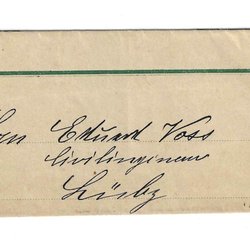 Eduard Voss
Civilingenieur
Lübz